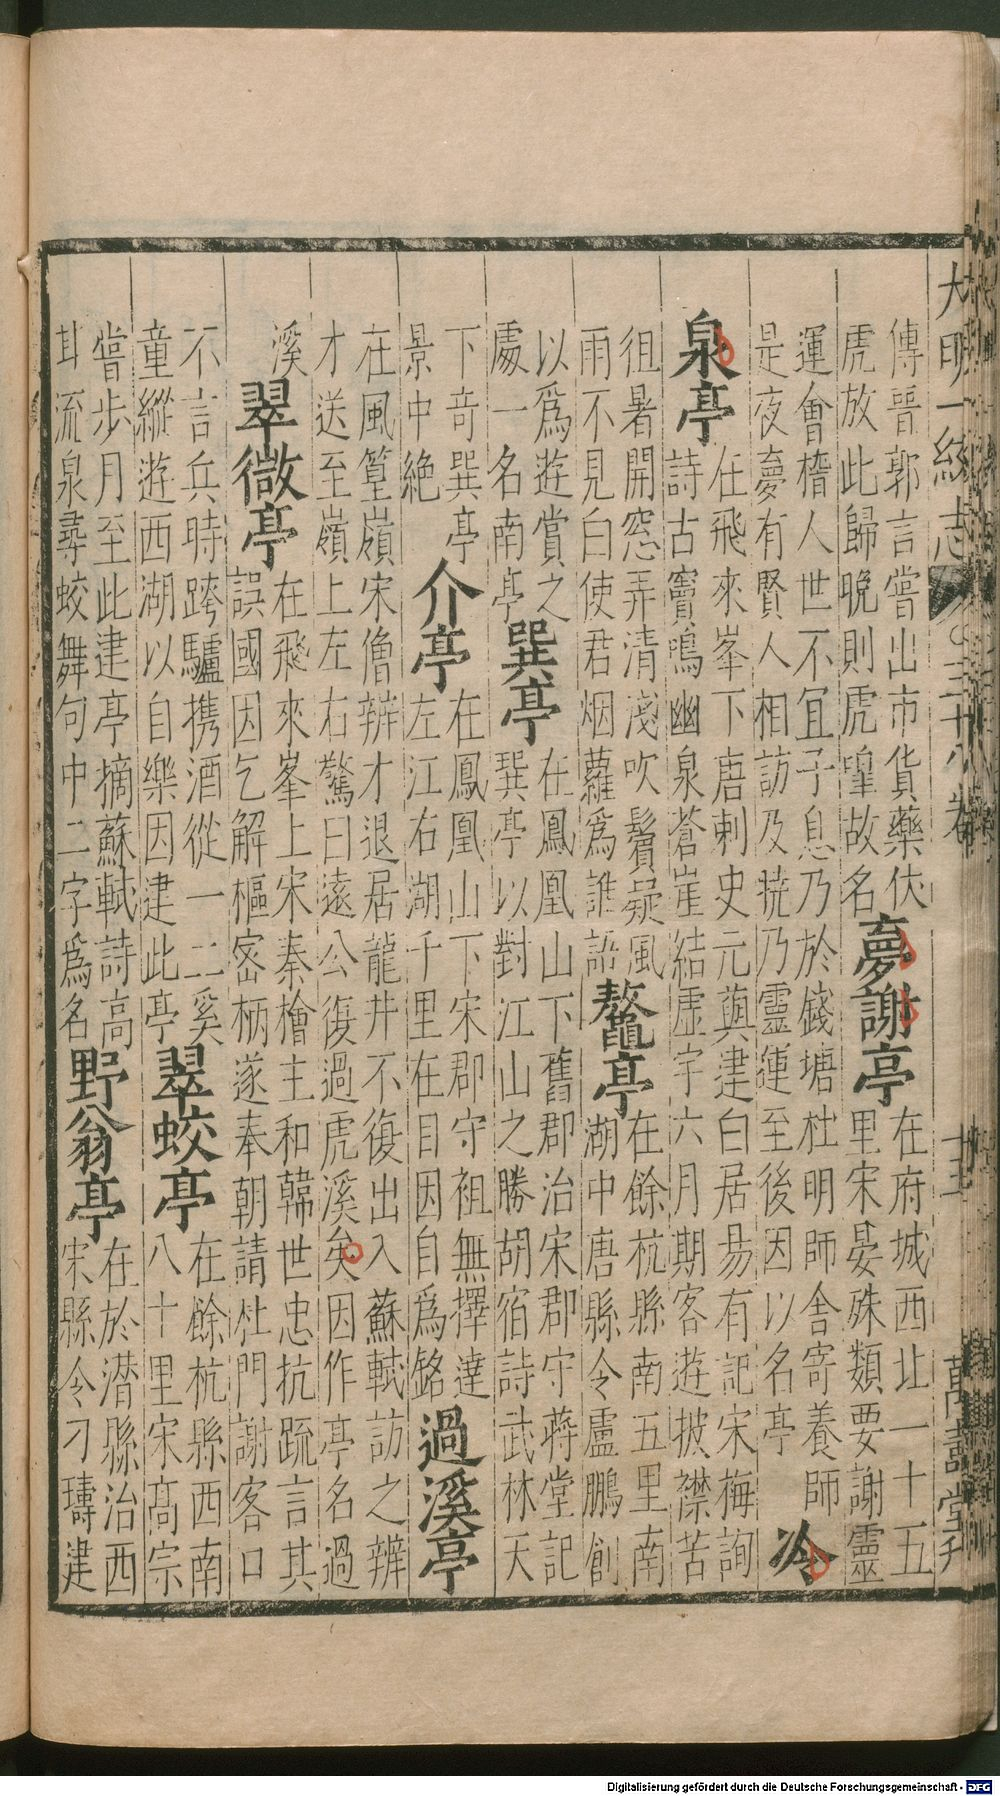 大明一統志 三十八卷 萬壽堂刋
傳晉郭言嘗出市貨藥伏
虎放此歸晚則虎嘷故名
夢謝亭
在府城西北一十五
里宋晏殊類要謝靈
運會稽人世不宜子息乃於錢塘杜明師舍寄養師
是夜夢有賢人相訪及曉乃靈運至後因以名亭
冷
泉亭
在飛來峯下唐刺史元藇建白居昜有記宋梅詢
詩古竇鳴幽泉蒼崖結虛宇六月期客遊披襟苦
徂暑開窓弄清淺吹鬢疑風
雨不見白使君烟蘿爲誰語
鼇亭
在餘杭縣南五里南
湖中唐縣令盧鵬創
以爲遊賞之
處一名南亭
巽亭
在鳳凰山下舊郡治宋郡守蔣堂記
巽亭以對江山之勝胡宿詩武林天
下竒巽亭
景中絶
介亭
在鳳凰山下宋郡守祖無擇達
左江右湖千里在目因自爲銘
過溪亭
在風篁嶺宋僧辨才退居龍井不復出入蘇軾訪之辨
才送至嶺上左右驚曰遠公復過虎溪矣因作亭名過
溪
翠微亭
在飛來峯上宋秦檜主和韓世忠抗䟽言其
誤國因乞解樞宻柄遂奉朝請杜門謝客口
不言兵時跨驢携酒從一二奚
童縱遊西湖以自樂因建此亭
翠蛟亭
在餘杭縣西南
八十里宋髙宗
嘗步月至此建亭摘蘇軾詩高
流泉尋蛟舞句中二字爲名
野翁亭
在於濳縣治西
宋縣令刁璹建
Digitalisierung gefördert durch die Deutsche Forschungsgemeinschaft - DFG